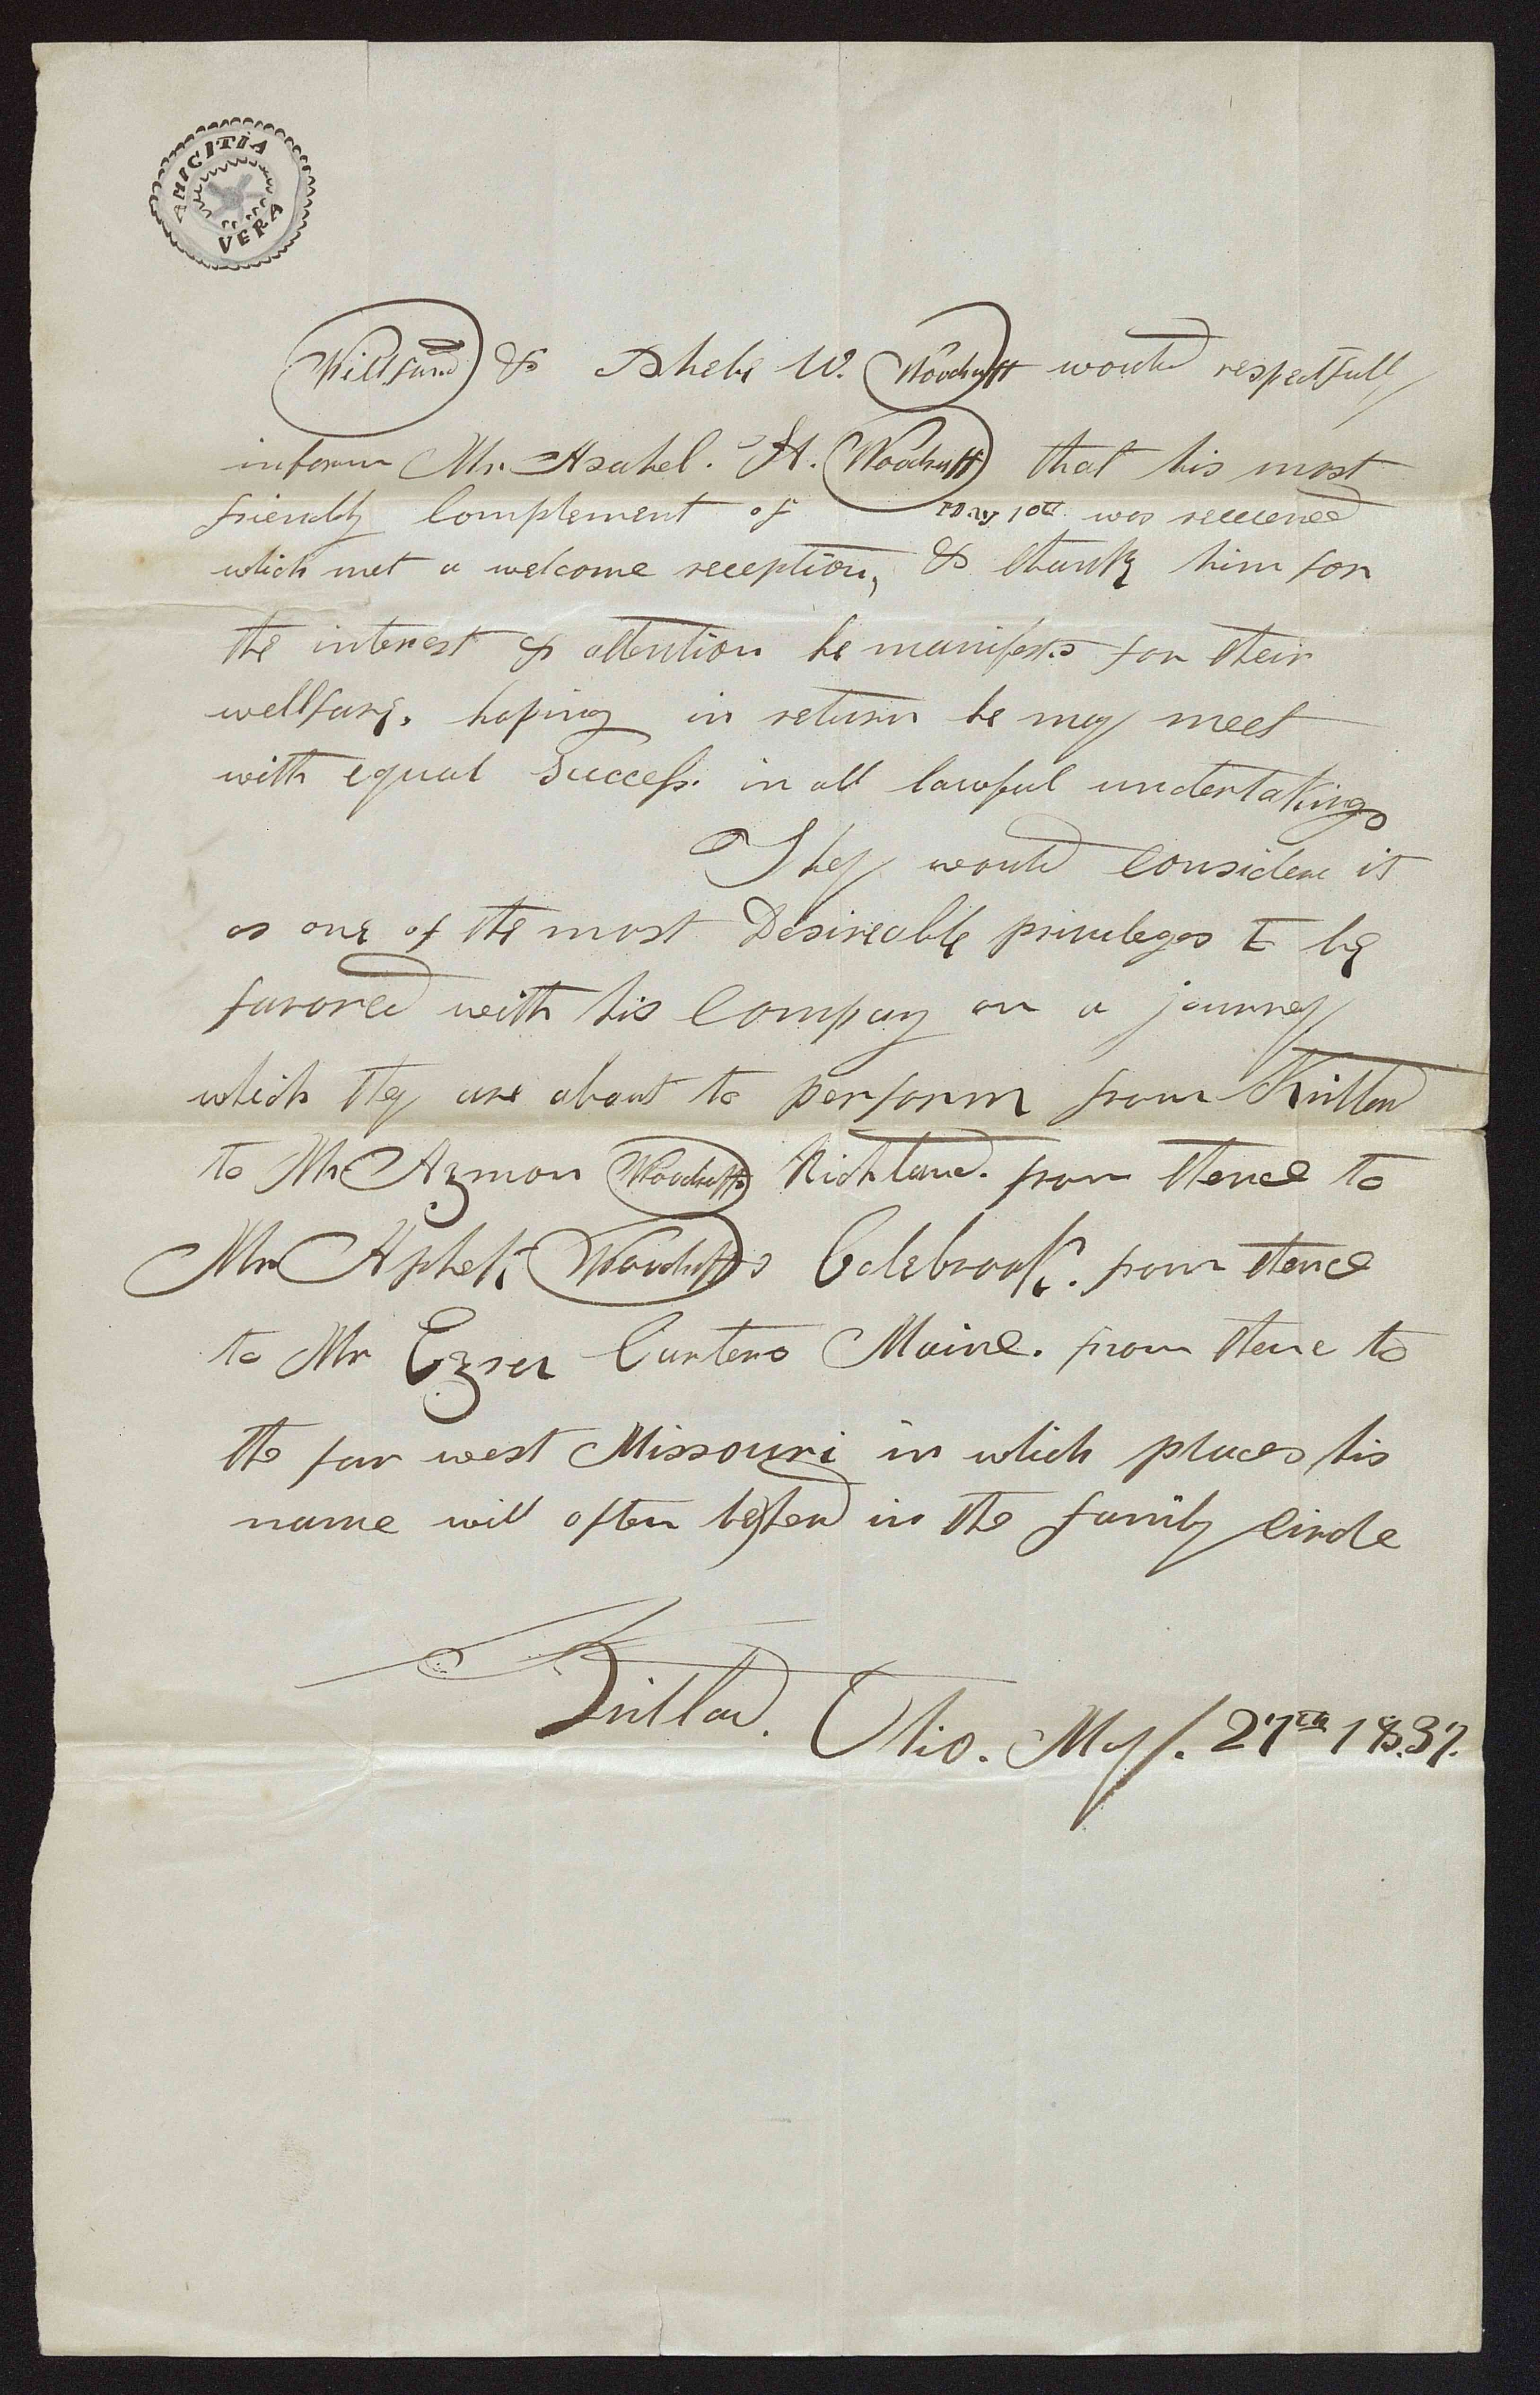 AMICITIA
VERA
Willford & Phebe W. Woodruff would respectfully
inform Mr. Asahel. H. Woodruff that his most
friendly Complement of May 10th was received
which met a welcome reception, & thank him for
the interest & attention he manifests for their
wellfare. hoping in return he may meet
with equal Success. in all lawful undertakings
They would consider it
as one of the most Desireable privileges to be
favored with his Company on a journey
which they are about to perform from Kirtland
to Mr Azmon Woodruffs Richland. from thence to
Mr Aphek Woodruffs Colebrook. from thence
to Mr Ezra Carters Maine. from thence to
the far west Missouri in which places his
name will often be heard in the family circle
Kirtland. Ohio. May. 27th 1837.